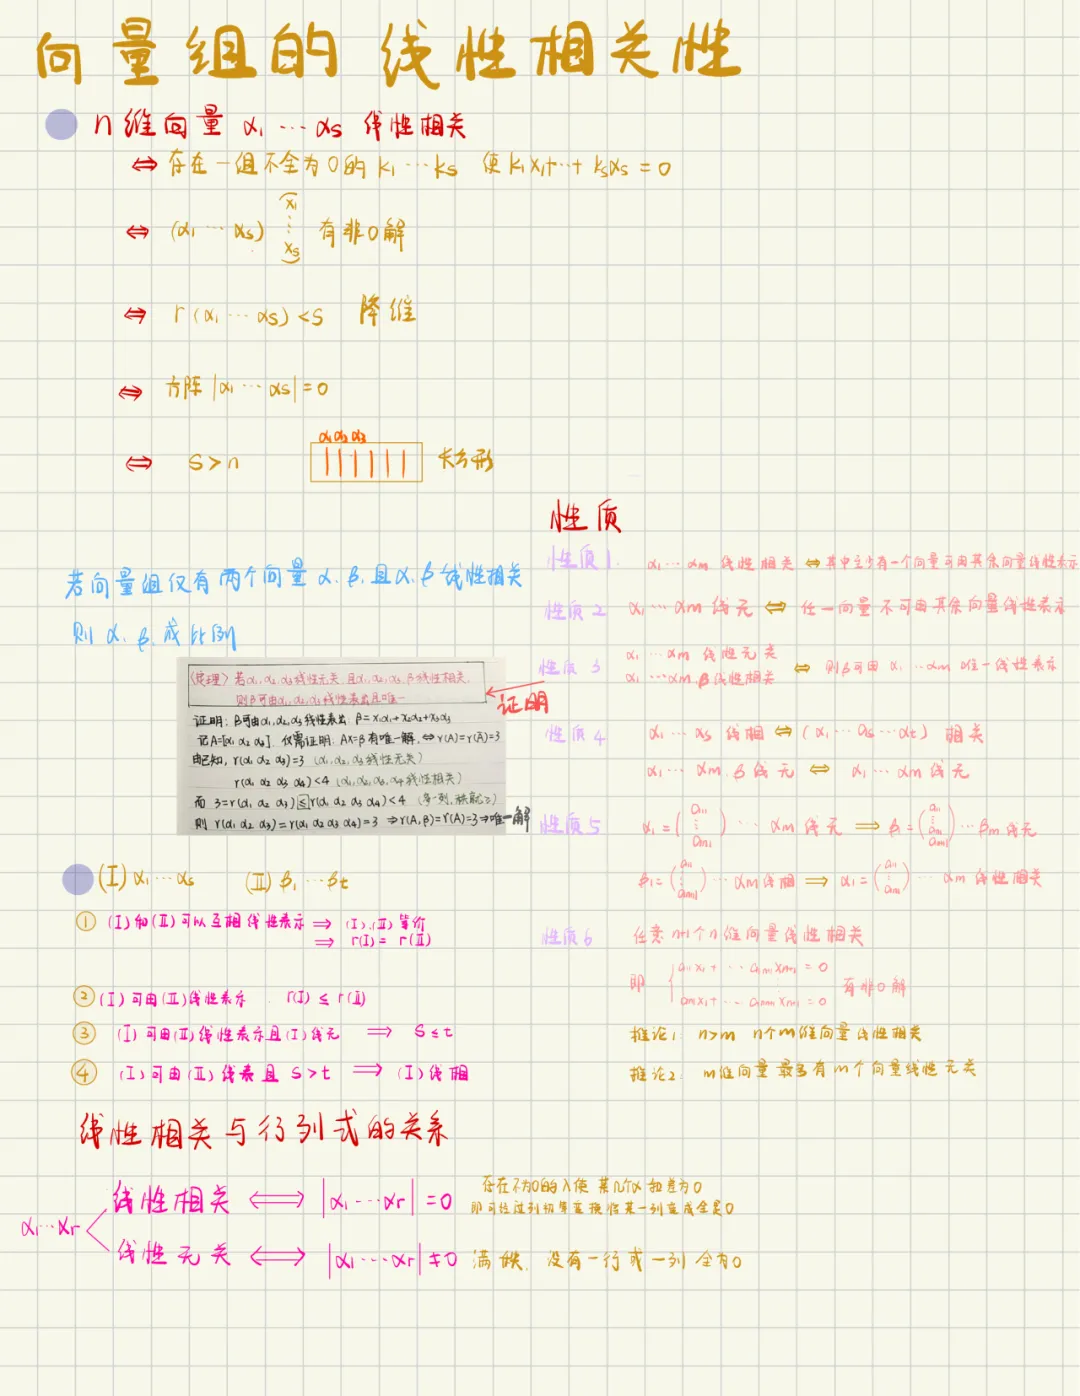 向量组的线性相关性
n维向量 α₁…αs 线性相关
⇔ 存在一组不全为0的 k₁…ks 使k₁x₁+…+ksαs=0
⇔ (α₁…αs) (x₁ ⋮ xs) 有非0解
⇔ r(α₁…αs)<s 降维
⇔ 方阵 |α₁…αs|=0
⇔ s>n α₁α₂α₃ 长方形
若向量组仅有两个向量 α.β.且α.β线性相关
则 α.β.成比例
<定理> 若α₁,α₂,α₃线性无关,且α₁,α₂,α₃,β线性相关,
则β可由α₁,α₂,α₃线性表出且唯一
证明
证明: β可由α₁,α₂,α₃线性表出: β=x₁α₁+x₂α₂+x₃α₃
记A=[α₁ α₂ α₃]. 仅需证明: AX=β有唯一解,⇔r(A)=r(Ā)=3
由已知, r(α₁ α₂ α₃)=3 (α₁,α₂,α₃线性无关)
r(α₁ α₂ α₃ α₄)<4 (α₁,α₂,α₃,α₄线性相关)
而 3=r(α₁ α₂ α₃)≤r(α₁ α₂ α₃ α₄)<4
则 r(α₁ α₂ α₃)=r(α₁ α₂ α₃ α₄)=3 ⇒r(A,β)=r(A)=3⇒唯一解
性质
性质1. α₁…αm 线性相关 ⇔ 其中至少有一个向量可由其余向量线性表示
性质2 α₁…αm 线无 ⇔ 任一向量不可由其余向量线性表示
性质3 α₁…αm 线性无关
α₁…αm.β线性相关 ⇔ 则β可由 α₁…αm 唯一线性表示
性质4 α₁…αs 线相⇔(α₁…αs…αt) 相关
α₁…αm.β线无 ⇔ α₁…αm线无
性质5 α₁=(a₁₁ ⋮ am₁) … αm线无 ⇒ β₁=(a₁₁ ⋮ am₁ am+1)…βm线无
β₁=(a₁₁ ⋮ am+1)…αm线相 ⇒ α₁=(a₁₁ ⋮ am₁)…αm 线性相关
性质6 任意 n+1个n维向量线性相关
即 { a₁₁x₁+…a₁n+1xn+1=0
an₁x₁+…ann+1xn+1=0 有非0解
推论1: n>m n个m维向量线性相关
推论2: m维向量最多有m个向量线性无关
(Ⅰ)α₁…αs (Ⅱ)β₁…βt
① (Ⅰ)和(Ⅱ)可以互相线性表示 ⇒ (Ⅰ).(Ⅱ)等价
⇒ r(Ⅰ)=r(Ⅱ)
② (Ⅰ)可由(Ⅱ)线性表示. r(Ⅰ)≤r(Ⅱ)
③ (Ⅰ)可由(Ⅱ)线性表示且(Ⅰ)线无 ⇒ s≤t
④ (Ⅰ)可由(Ⅱ)线表且 s>t ⇒ (Ⅰ)线相
线性相关与行列式的关系
α₁…αr
线性相关 ⇔ |α₁…αr|=0 存在不为0的λ使 某几个α加总为0
即可经过列初等变换你某一列变成全是0
线性无关 ⇔ |α₁…αr|≠0 满秩. 没有一行或一列全为0